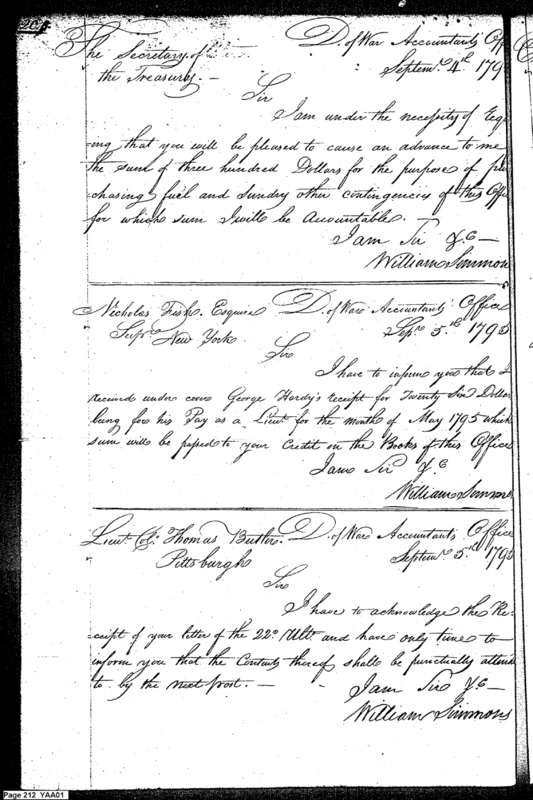 The Secretary of D. of War Accountants Off
the Treasury. — Septemr. 4th 179
Sir
I am under the necessity of Requ
=ing that you will be pleased to cause an advance to me
the sum of three hundred Dollars for the purpose of pur
=chasing fuel and sundry other contingencies of this Offi
for which sum I will be Accountable. —
I am Sir &c —
William Simmons
Nicholas Fish. Esquire D. of War Accountants Office
Supr. New York. Sepr. 5th 1795
Sir
I have to inform you that I
received under cover George Hardy's receipt for Twenty Six Dollars
being for his Pay as a Lieut. for the month of May 1795 which
sum will be passed to your Credit on the Books of this Office
I am Sir &c
William Simmons
Lieut. Col. Thomas Butler. D. of War Accountants Office
Pittsburgh Septemr. 5th 1795
Sir
I have to acknowledge the Re=
=ceipt of your letter of the 22d. Ulto. and have only time to
inform you that the Contents thereof shall be punctually attend
to by the next post. —
I am Sir &c —
William Simmons
Page 212 YAA01